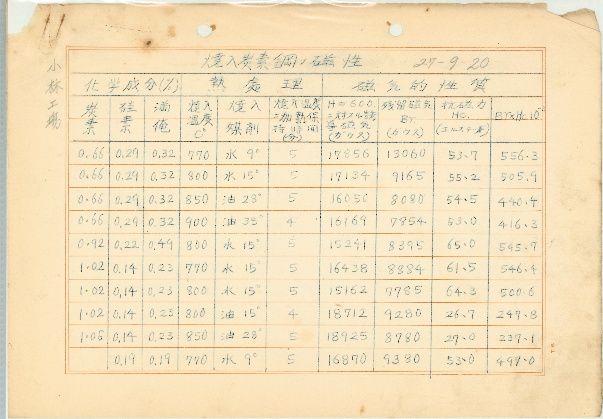 小林工場
焼入炭素鋼ノ磁性 27-9-20
化学成分(%) 熱處理 磁気的性質
炭素 硅素 満俺 焼入温度C° 焼入媒剤 焼入温度ニ加熱保持時間(分) H=500ニ対スル誘導磁気(ガウス) 残留磁気Br.(ガウス) 抗磁力Hc.(エルステッド) Br×Hc.10
0.66 0.29 0.32 770 水 9° 5 17856 13060 53.7 556.3
0.66 0.29 0.32 800 水 15° 5 17134 9165 55.2 505.9
0.66 0.29 0.32 850 油 28° 5 16050 8080 54.5 440.4
0.66 0.29 0.32 900 油 35° 4 16169 7854 53.0 416.3
0.92 0.22 0.49 800 水 15° 5 15241 8395 65.0 545.7
1.02 0.14 0.23 770 水 15° 5 16438 8884 61.5 546.4
1.02 0.14 0.23 800 水 15° 5 15162 7785 64.3 500.6
1.02 0.14 0.23 800 油 15° 4 18712 9280 26.7 247.8
1.05 0.14 0.23 850 油 28° 5 18925 8780 27.0 237.1
0.19 0.19 770 水 9° 5 16870 9380 53.0 497.0